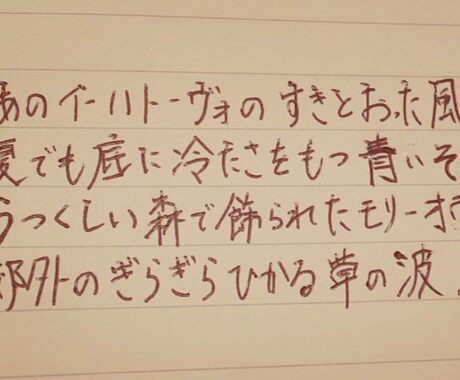 あのイーハトーヴォのすきとおった風
夏でも底に冷たさをもつ青いそ
うつくしい森で飾られたモリーオ
郊外のぎらぎらひかる草の波